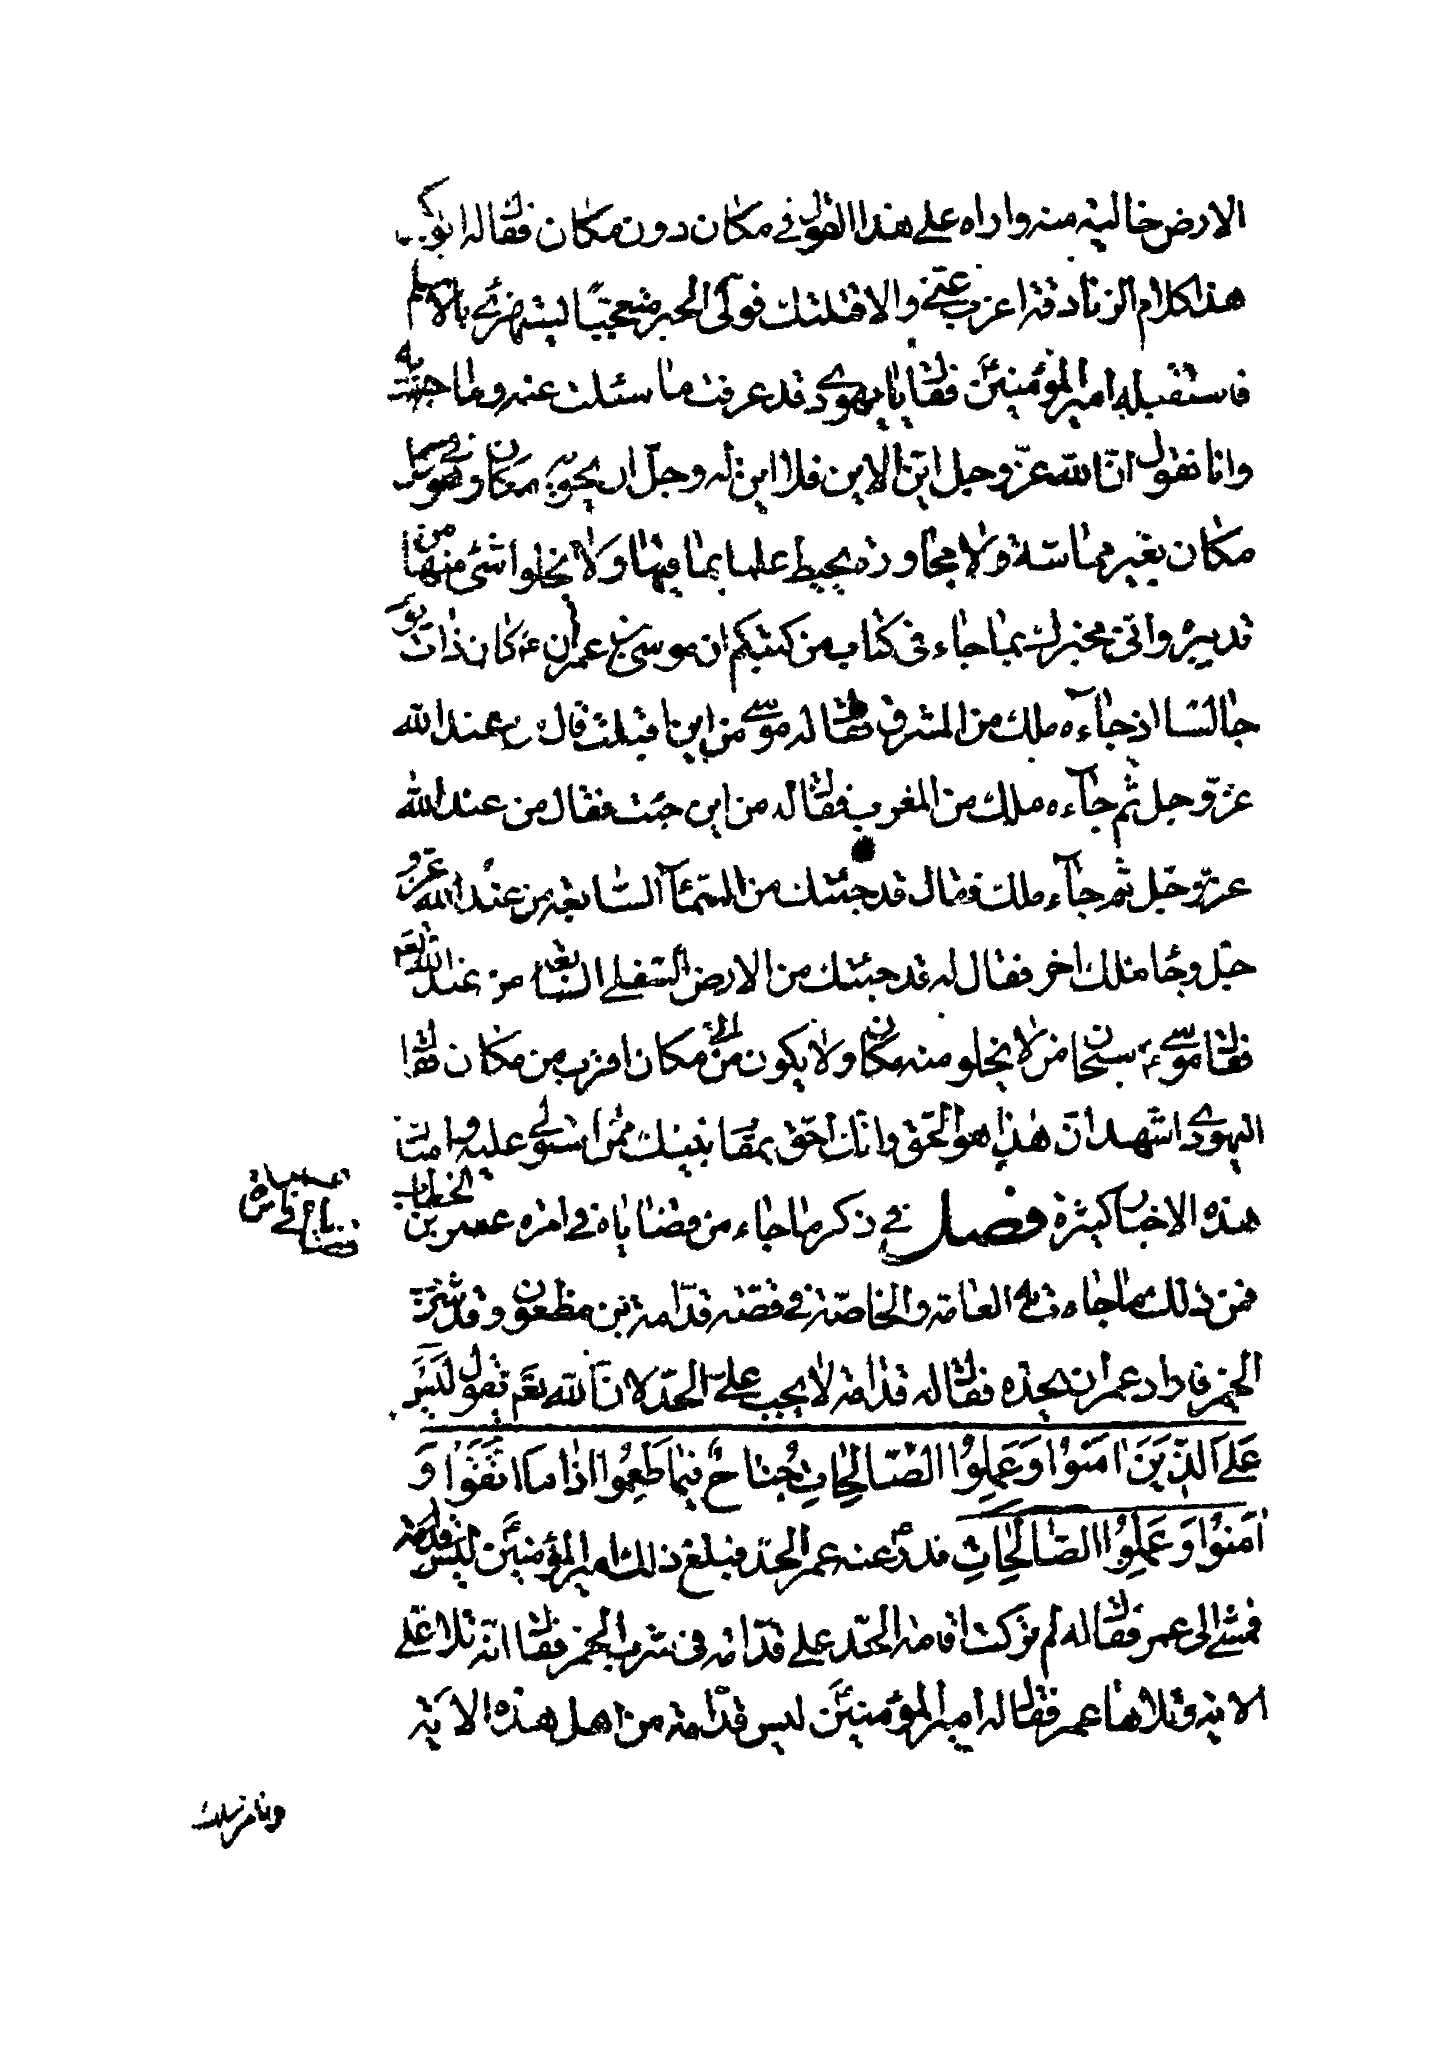 الارض خالية منه واراه على هذا القول في مكان دون مكان فقال له ابو بكر
هذا كلام الزنادقة اعزب عني والا قتلتك فولى الحبر متعجبًا يستهزئ بالاسلم
فاستقبله امير المؤمنين ع فقال يا يهودي قد عرفت ما سئلت عنه وما اجبت به
وانا نقول ان الله عزّ وجل ايّن الاين فلا اين له وجلّ ان يحويه مكان وهو في كل
مكان بغير مماسّة ولا مجاورة يحيط علما بما فيها ولا يخلوا شئ منها من
تدبيره واني مخبرك بما جاء في كتاب من كتبكم ان موسى بن عمران ع كان ذات يوم
جالسًا اذ جآءه ملك من المشرق فقال له موسى من اين اقبلت قال من عند الله
عزّ وجل ثم جآءه ملك من المغرب فقال له من اين جئت فقال من عند الله
عزّ وجّل ثم جآء ملك فقال قد جئتك من السمآء السّابعة من عند الله عزّ و
جّل وجا ملك اخر فقال له قد جئتك من الارض السّفلى السابعة من عند الله تعا
فقال موسى ع سبحان من لا يخلو منه مكان ولا يكون من الى مكان اقرب من مكان فقال
اليهودي اشهد انّ هذا هو الحق وانك احق بمقام نبيك ممّن استولى عليه وامثال
هذه الاخبار كثيرة فصل في ذكر ما جاء من قضاياه في امره عمر بن الخطاب
فمن ذلك ما جاء به العامة والخاصّة في قصّة قدّامة بن مظعون وقد شرب
الخمر فاراد عمر ان يحده فقال له قدامة لا يجب علىّ الحدّ لان الله تعم يقول لَيْسَ
عَلَى الَّذِينَ امَنُوا وَعَمِلُوا الصَّالِحَاتِ جُنَاحٌ فِيمَا طَعِمُوا اِذَا مَا اتَّقَوْا وَ
اٰمَنُوا وَعَمِلُوا الصَّالِحَاتِ فدرء عنه عمر الحدّ فبلغ ذلك امير المؤمنين ع ليس قدامة
فمشى الى عمر فقال له لم تركت اقامة الحّد على قدّامة في شرب الخمر فقال انّه تلا على
الاية وتلاها عمر فقال له امير المؤمنين ع ليس قدّامة من اهل هذه الاية